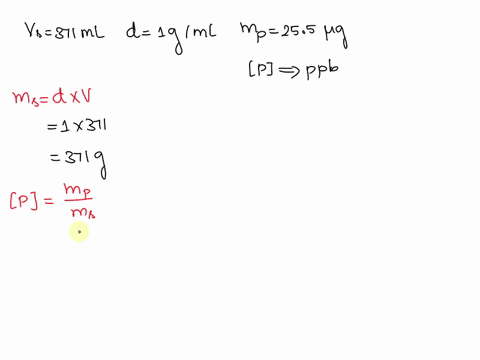 Vs=371mL d=1g/mL mp=25.5 μg
[P] ⟹ ppb
ms=d×V
=1×371
=371g
[P] = mp/ms